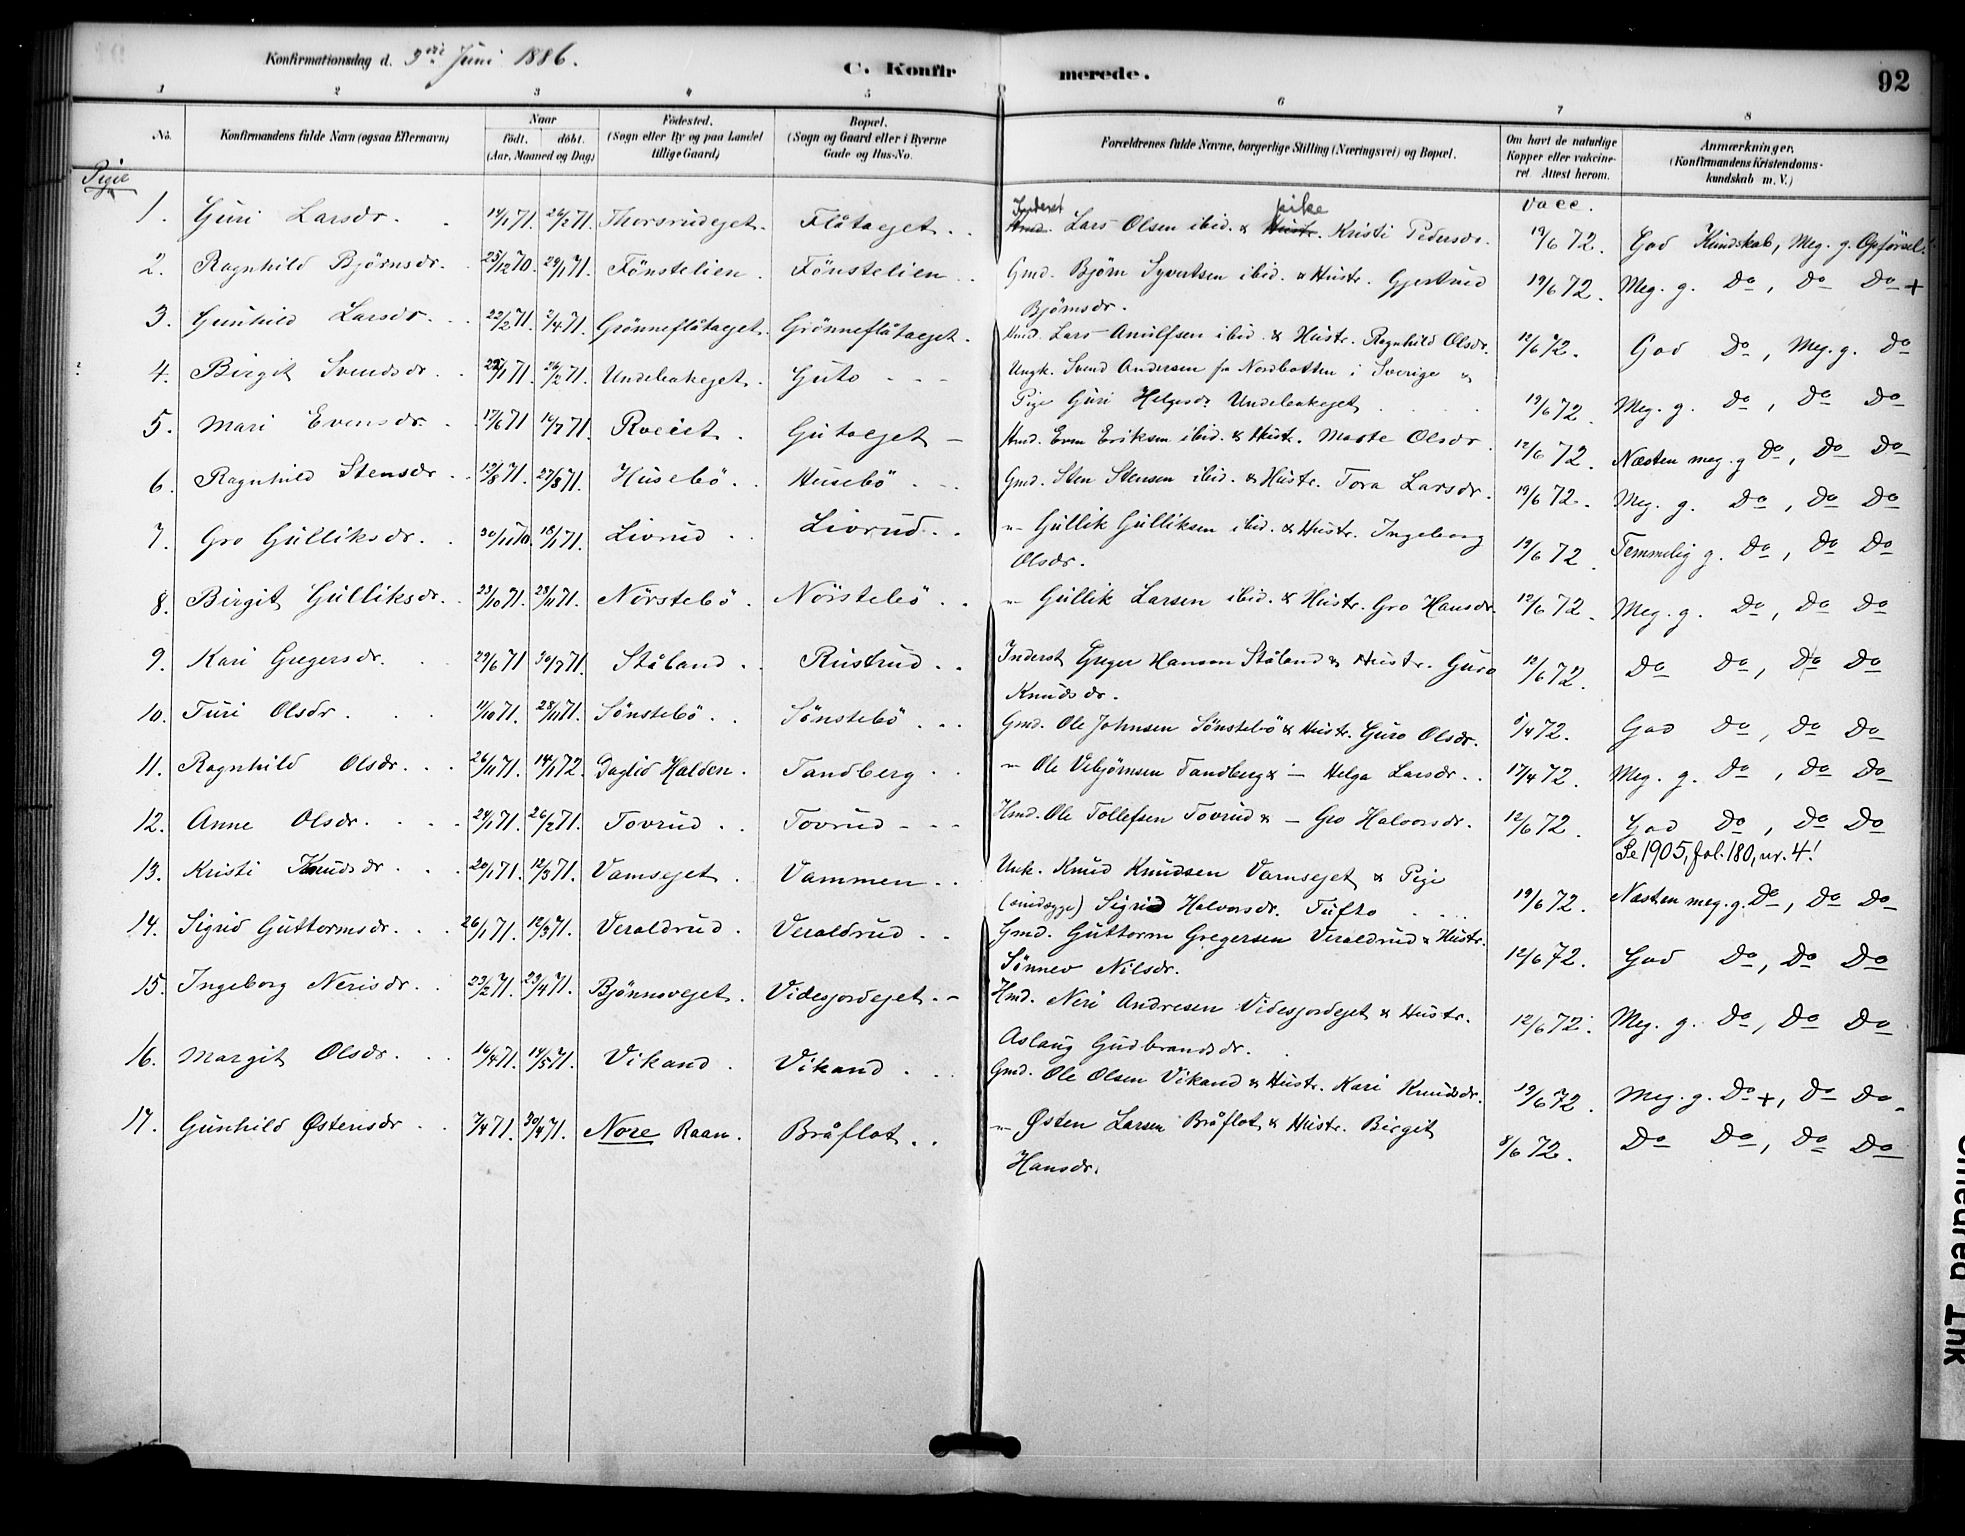 Konfirmationsdag d. 3die Juni 1886.
C. Konfirmerede.
92
1 2 3 4 5 6 7 8
No. Konfirmandens fulde Navn (ogsaa Efternavn) Naar født. døbt. (Aar, Maaned og Dag) Födested. (Sogn eller By og paa Landet tillige Gaard) Bopæl. (Sogn og Gaard eller i Byerne Gade og Hus-No. Forældrenes fulde Navne, borgerlige Stilling (Næringsvei) og Bopæl. Om havt de naturlige Kopper eller vakcineret. Attest herom. Anmærkninger. (Konfirmandens Kristendomskundskab m. V.)
Piger
vacc.
Inderst pike
1. Guri Larsdr. 14/1 71. 26/2 71. Thorsrudejet. Flåtaejet. Hmd. Lars Olsen ibid. & Hustr. Kristi Pedersdr. 19/6 72. God Kundskab, Meg. g. Opførsel.
2. Ragnhild Bjørnsdr. 25/12 70. 29/1 71. Fönstelien. Fönstelien. Gmd. Bjørn Syvertsen ibid. & Hustr. Gjertrud
Bjørnsdr. 19/6 72. Meg. g. Do, Do Do +
3. Gunhild Larsdr. 22/2 71. 2/4 71. Grönneflåtaejet. Grönneflåtaejet. Hmd. Lars Arnulfsen ibid. & Hustr. Ragnhild Olsdr. 12/6 72. God Do, Meg. g. Do
4. Birgit Svendsdr. 22/1 71. 26/2 71. Undebakejet. Guto Ungk. Svend Andersen fr Nordbotten i Sverige &
Pige Guri Helgesdr. Undebakejet 19/6 72. Meg. g. Do, Do Do
5. Mari Evensdr. 17/6 71. 16/7 71. Roeiet. Gutoejet Hmd. Even Eriksen ibid. & Hustr. Marte Olsdr. 12/6 72. Næsten meg. g Do, Do Do
6. Ragnhild Stensdr. 12/8 71. 27/8 71. Husebö. Husebö. Gmd. Sten Stensen ibid. & Hustr. Tora Larsdr. 19/6 72. Meg. g. Do, Do Do
7. Gro Gulliksdr. 30/11 70. 18/1 71. Livrud Livrud. " Gullik Gulliksen ibid. & Hustr. Ingeborg
Olsdr. 19/6 72. Temmelig g. Do, Do Do
8. Birgit Gulliksdr. 23/10 71. 28/11 71. Nörstebö. Nöistebö. " Gullik Larsen ibid. & Hustr. Gro Hansdr. 12/6 72. Meg. g. Do, Do Do
9. Kari Gregersdr. 29/6 71. 30/7 71. Ståland. Rustrud. Inderst Greger Hansen Ståland & Hustr. Guro
Knudsdr. 12/6 72. Do Do, Do Do
10. Turi Olsdr. 11/10 71. 28/11 71. Sönstebö. Sönstebö. Gmd. Ole Johnsen Sönstebö & Hustr. Guro Olsdr. 5/4 72. God Do, Do Do
11. Ragnhild Olsdr. 26/11 71. 14/1 72. Daglid Halden. Tandberg " Ole Vebjørnsen Tandberg & — Helga Larsdr. 17/4 72. Meg. g. Do, Do Do
12. Anne Olsdr. 24/1 71. 26/2 71. Tovrud. Tovrud Hmd. Ole Tollefsen Tovrud & — Gro Halvorsdr. 12/6 72. God Do, Do Do
Se 1905, fol. 180, nr. 4!
13. Kristi Knudsdr. 20/1 71. 12/3 71. Vamsejet. Vammen. Unk. Knud Knudsen Vamsejet & Pige
Sigrid Halvorsdr. Tufto 19/6 72. Næsten meg. g. Do, Do Do
14. Sigrid Guttormsdr. 26/1 71. 12/3 71. Veraldrud. Veraldrud. Gmd. Guttorm Gregersen Veraldrud & Hustr.
Sönnev Nilsdr. 12/6 72. God Do, Do Do
15. Ingeborg Nerisdr. 23/2 71. 23/4 71. Bjönnsvejet. Videsjordejet. Hmd. Neri Andresen Videsjordejet & Hustr.
Aslaug Gudbrandsdr. 12/6 72. Meg. g. Do, Do Do
16. Margit Olsdr. 16/4 71. 14/5 71. Vikand. Vikand. Gmd. Ole Olsen Vikand & Hustr. Kari Knudsdr. 19/6 72. Meg. g. Do +, Do Do
17. Gunhild Østensdr. 7/4 71. 30/4 71. Nore Raan. Bråflot. " Østen Larsen Bråflot & Hustr. Birgit
Hansdr. 8/6 72. Do Do, Do Do
Smeared Ink